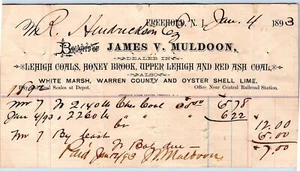 FREEHOLD, N. J. Jan 4 1893
Mr R. Hendrickson
Bought of JAMES V. MULDOON,
DEALER IN
LEHIGH COALS, HONEY BROOK, UPPER LEHIGH AND RED ASH COAL.
ALSO
WHITE MARSH, WARREN COUNTY AND OYSTER SHELL LIME.
Scales at Depot. Office Near Central Railroad Station.
1892
Nov 7 2140 lb Coal 6.78
Jan 4/93 2260 lb 6.22
12.00
Nov 7 By Cash 5.00
Bal due 7.00
Paid Jan 12/93 J. V. Muldoon